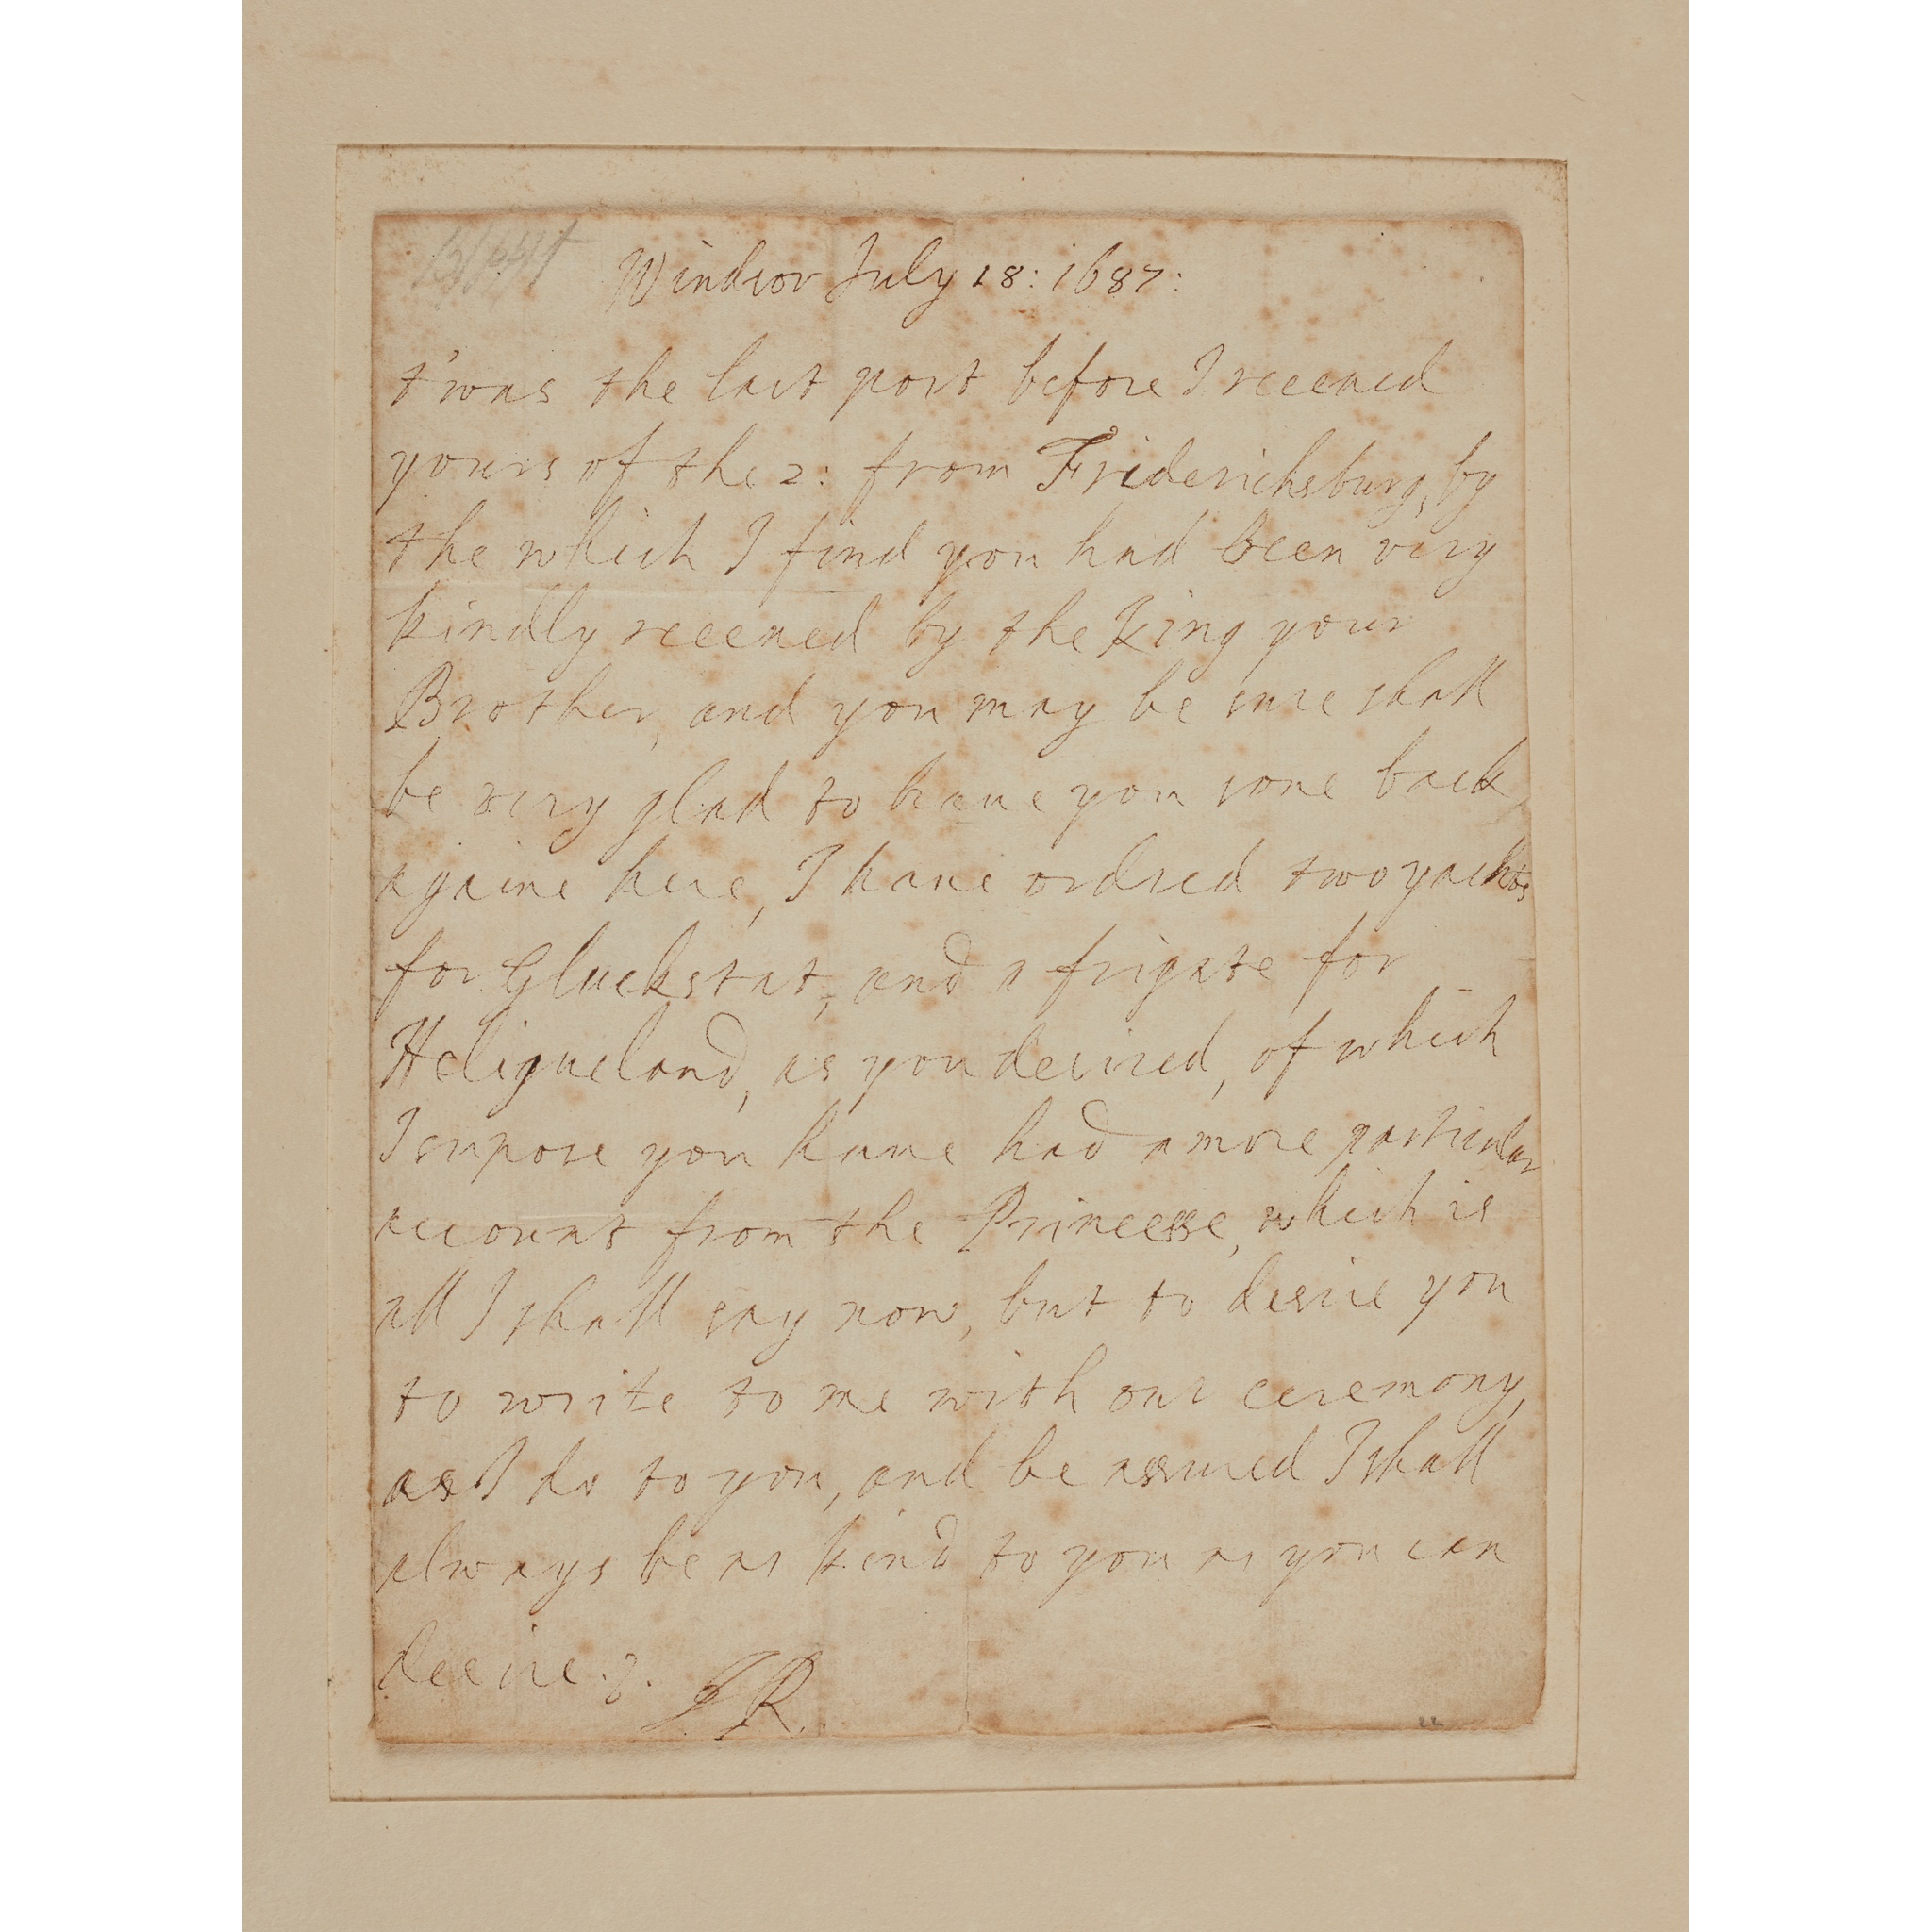 Windsor July 18: 1687:
t'was the last post before I receaued
yours of the 2: from Friderichsburg, by
the which I find you had been very
kindly receaued by the King your
Brother, and you may be sure shall
be very glad to haue you sone back
againe here, I haue ordred two yachts
for Gluckstat, and a frigate for
Heligueland, as you desired, of which
I supose you haue had a more particular
account from the Princesse, which is
all I shall say now, but to desire you
to write to me with out ceremony,
as I do to you, and be assured I shall
always be as kind to you as you can
desire.
JR.
22